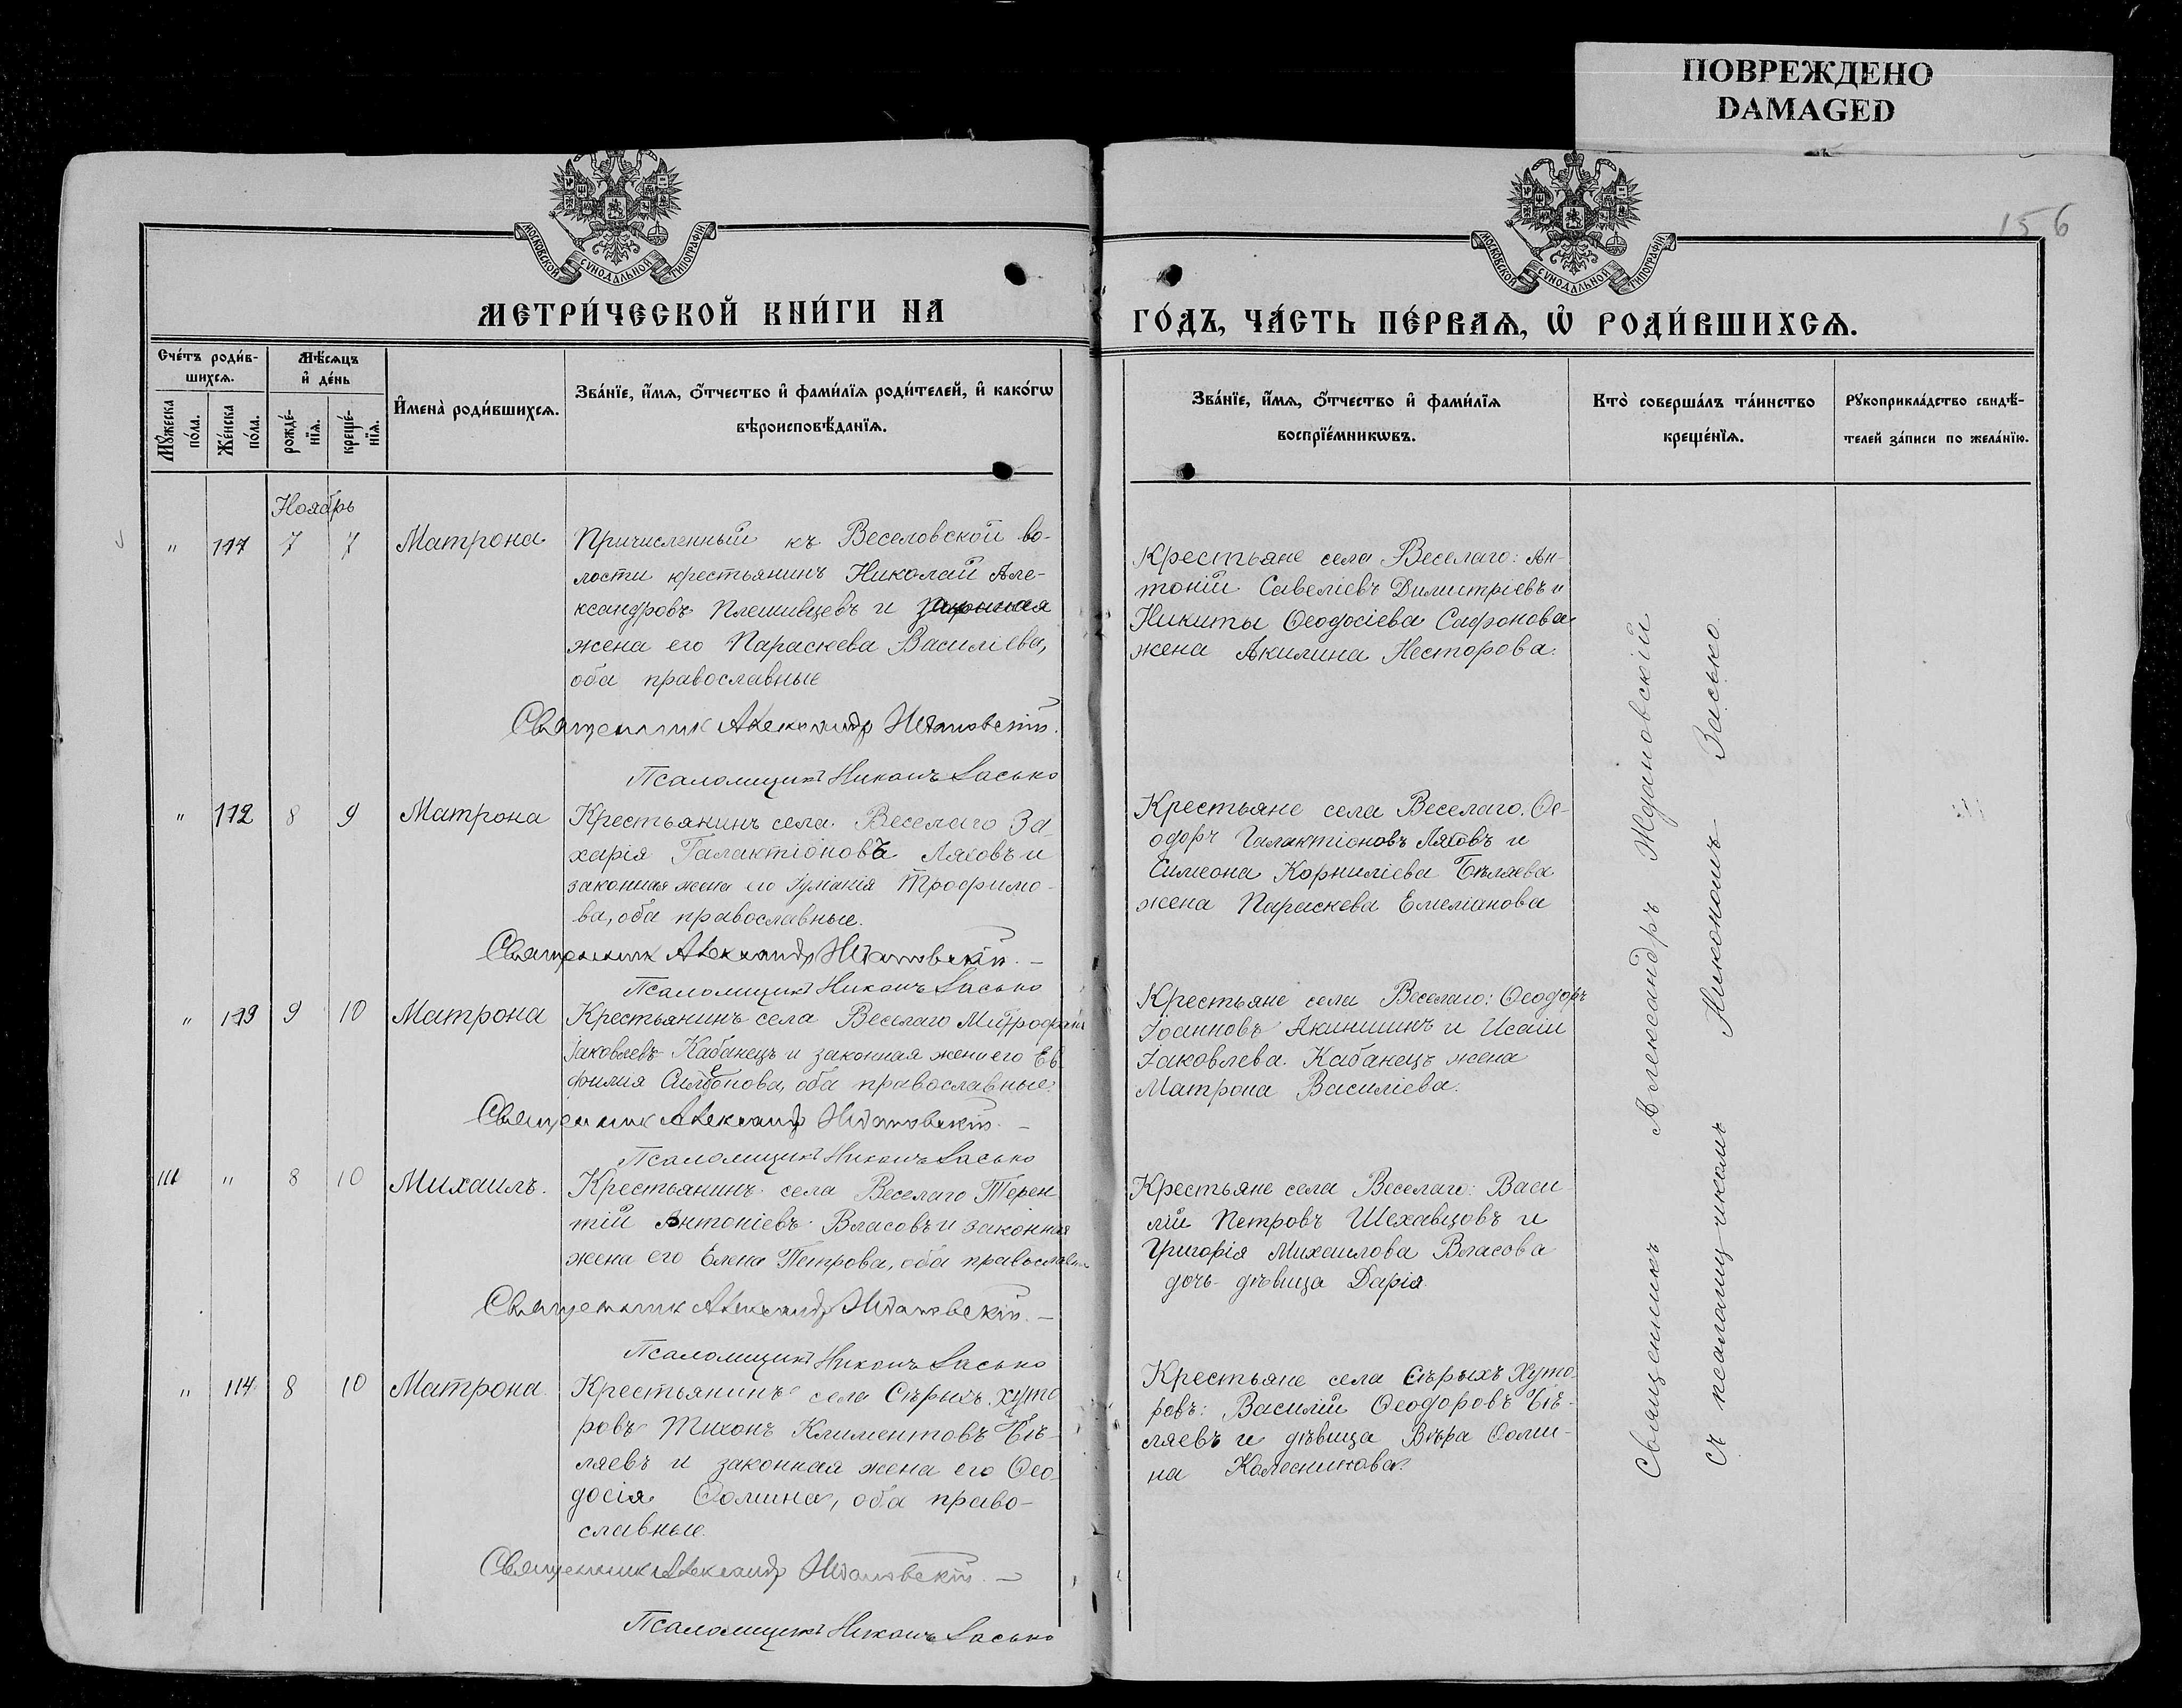 ПОВРЕЖДЕНО
DAMAGED
156
МОСКОВСКОЙ СѴНОДАЛЬНОЙ ТИПОГРАФІИ
МОСКОВСКОЙ СѴНОДАЛЬНОЙ ТИПОГРАФІИ
МЕТРИ́ЧЕСКОЙ КНИ́ГИ НА
ГО́ДЪ, ЧА́СТЬ ПЕ́РВАѦ, Ѡ҆ РОДИ́ВШИХСѦ.
Сче́тъ роди́в-
шихсѧ.
Мꙋ́жеска
по́ла.
Же́нска
по́ла.
Мѣ́сѧцъ
и҆ де́нь
рожде́-
нїѧ.
креще́-
нїѧ.
И҆мена̀ роди́вшихсѧ.
Зва́нїе, и҆́мѧ, ѻ҆́тчество и҆ фами́лїѧ роди́телей, и҆ како́гѡ
вѣроисповѣ́данїѧ.
Зва́нїе, и҆́мѧ, ѻ҆́тчество и҆ фами́лїѧ
воспрїе́мникѡвъ.
Кто̀ соверша́лъ та́инство
креще́нїѧ.
Рꙋкоприкла́дство свидѣ́-
телей за́писи по жела́нїю.
Ноябрь
" 7 7 Матрона
Причисленный къ Веселовской во-
лости крестьянинъ Николай Але-
ксандровъ Плешивцевъ и
жена его Параскева Василіева,
оба православные
Священникъ Александръ Ждановскій.
Псаломщикъ Никонъ Засько
Крестьяне села Веселаго: Ан-
тоній Савеліевъ Димитріевъ и
Никиты Ѳеодосіева Сафонова
жена Акилина Несторова.
" 112 8 9 Матрона
Крестьянинъ села Веселаго За-
харія Галактіоновъ Ляховъ и
законная жена его Іуліанія Трофимо-
ва, оба православные.
Священникъ Александръ Ждановскій. —
Псаломщикъ Никонъ Засько
Крестьяне села Веселаго. Ѳе-
одоръ Галактіоновъ Ляховъ и
Симеона Корниліева Бѣляева
жена Параскева Емеліанова
" 113 9 10 Матрона
Крестьянинъ села Веселаго Митрофанъ
Іаковлевъ Кабанецъ и законная жена его Ев-
фимія Симеонова, оба православные.
Священникъ Александръ Ждановскій. —
Псаломщикъ Никонъ Засько
Крестьяне села Веселаго: Ѳеодоръ
Іоанновъ Акиншинъ и Исаіи
Іаковлева Кабанецъ жена
Матрона Василіева.
" 8 10 Михаилъ.
Крестьянинъ села Веселаго Терен
тій Антоніевъ Власовъ и законная
жена его Елена Петрова, оба православн
Священникъ Александръ Ждановскій. —
Псаломщикъ Никонъ Засько
Крестьяне села Веселаго: Васи
лій Петровъ Шехавцовъ и
Григорія Михаилова Власова
дочь дѣвица Дарія.
" 114 8 10 Матрона
Крестьянинъ села Сѣрыхъ Хуто
ровъ Тихонъ Климентовъ Бѣ-
ляевъ и законная жена его Ѳео-
досія Ѳомина, оба право-
славные.
Священникъ Александръ Ждановскій. —
Псаломщикъ Никонъ Засько
Крестьяне села Сѣрыхъ Хуто-
ровъ: Василій Ѳеодоровъ Бѣ-
ляевъ и дѣвица Вѣра Ѳоми-
на Колесникова.
Священникъ Александръ Ждановскій
съ псаломщикомъ Никономъ Засько.